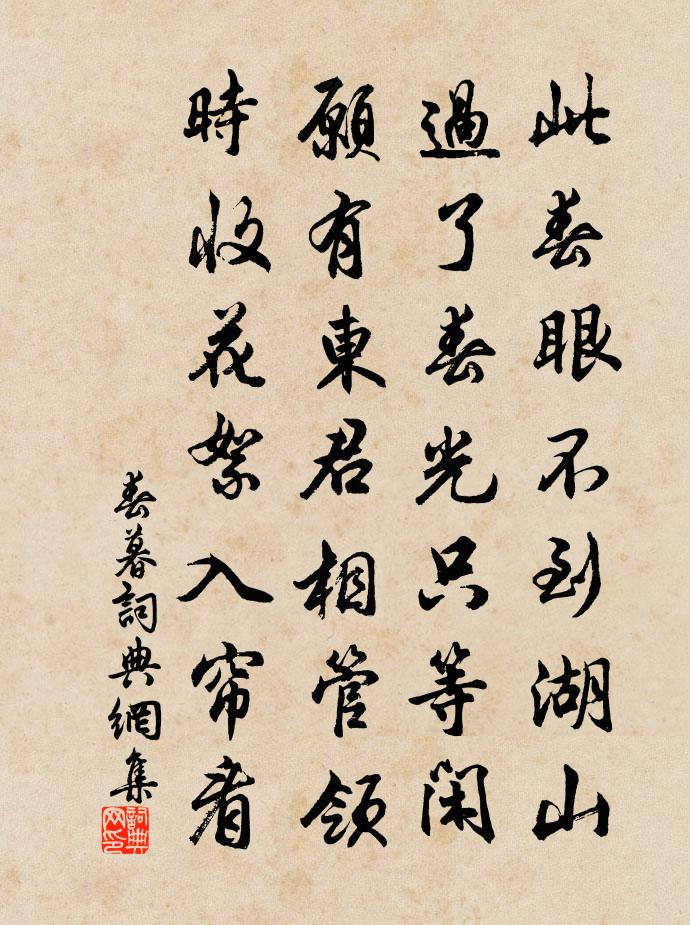 此春眼不到湖山
過了春光只等閑
願有東君相管領
時收花絮入帘看
春暮詞典網集
詞典网印